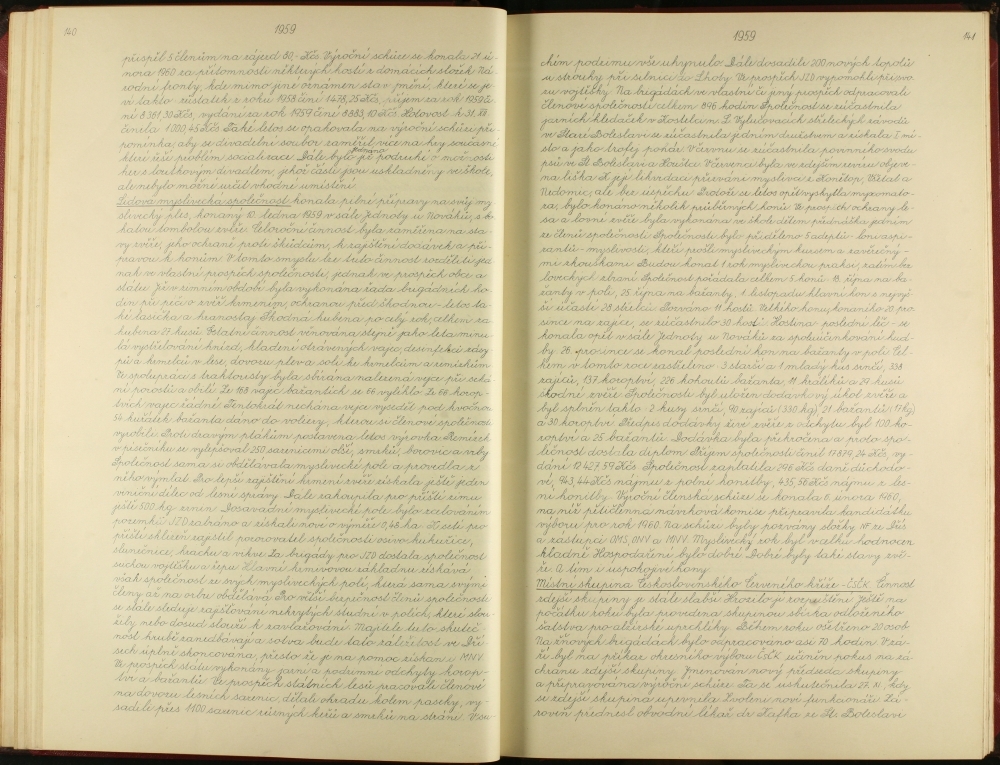 140
1959
přispěl 5 členům na zájezd 80.- Kčs. Výroční schůze se konala 21. ú-
nora 1960 za přítomnosti některých hostí z domácích složek Ná-
rodní fronty, kde mimo jiné oznámen stav jmění, které se je-
ví takto: zůstatek z roku 1958 činí 1478,25 Kčs, příjem za rok 1959 či-
ní 8.361,30 Kčs, vydání za rok 1959 činí 8.883,10 Kčs. Hotovost k 31. XII.
činila 1.000,45 Kčs. Také letos se opakovala na výroční schůzi při-
pomínka, aby se divadelní soubor zaměřil více na hry současné,
které řeší problém socialisace. Dále bylo jednáno již podruhé o možnosti
her s loutkovým divadlem, jehož části jsou uskladněny ve škole,
ale nebylo možné určit vhodné umístění.
Lidová myslivecká společnost konala pilné přípravy na svůj my-
slivecký ples, konaný 10. ledna 1959 v sále Jednoty u Nováků, s bo-
hatou tombolou zvěře. Celoroční činnost byla zaměřena na sta-
vy zvěře, jeho ochraně proti škůdcům, k zajištění dodávek a pří-
pravou k honům. V tomto smyslu lze tuto činnost rozděliti jed-
nak ve vlastní prospěch společnosti, jednak ve prospěch obce a
státu. Již v zimním období byla vykonána řada brigádních ho-
din při péči o zvěř krmením, ochranou před škodnou - letos ta-
ké lasička a hranostaj. Škodná hubena po celý rok, celkem za-
hubeno 27 kusů. Ostatní činnost věnována stejně jako léta minu-
lá vystřelování hnízd, kladení otrávených vajec, desinfekci zásy-
pů a krmelců v lese, dovozu plev a soli ke krmelcům a zimním.
Ve spolupráci s traktoristy byla sbírána nalezená vejce při seká-
ní porostů a obilí. Ze 168 vajec bažantích se 66 vylíhlo. Ze 66 korop-
tvích vajec žádné. Tentokrát nechána vejce vysedět pod kvočnou.
54 kuřátek bažanta dáno do voliéry, kterou si členové společnosti
vyrobili. Proti dravým ptákům postavena letos výrovka. Remízek
v písečníku se vylepšoval 250 sazenicemi olší, smrků, borovic a vrby.
Společnost sama si obdělávala myslivecké pole a provedla z
něho výmlat. Pro lepší zajištění krmení zvěře získala ještě jeden
viniční dílec od lesní správy. Dále zakoupila pro příští zimu
ještě 500 kg zrnin. Dosavadní myslivecké pole bylo scelováním
pozemků JZD zabráno a získali nové o výměře 0,48 ha. K setí pro
příští sklizeň zajistil porozovatel společnosti osivo kukuřice,
slunečnice, hrachu a vikve. Za brigády pro JZD dostala společnost
suchou vojtěšku a řepu. Hlavní krmivovou základnu získává
však společnost ze svých mysliveckých polí, která sama svými
členy až na orbu obdělává. Pro větší bezpečnost členů společnosti
se stále sleduje zajišťování nekrytých studní v polích, které slou-
žily nebo dosud slouží k zavlažování. Majitelé tuto skuteč-
nost hrubě zanedbávají a sotva bude tato záležitost ve Dří-
sech úplně skoncována, přesto že je na pomoc získán i MNV.
Ve prospěch státu vykonány jarní a podzimní odchyty korop-
tví a bažantů. Ve prospěch státních lesů pracovali členové
na dovozu lesních sazenic, dělali ohradu kolem paseky, vy-
sadili přes 1100 sazenic různých keřů a smrků na stráni. V su-
1959
141
chém podzimu vše uhynulo. Dále dosadili 200 nových topolů
u strouhy při silnici ze Lhoty. Ve prospěch JZD vypomohli při svo-
zu vojtěšky. Na brigádách ve vlastní či jiný prospěch odpracovali
členové společnosti celkem 896 hodin. Společnost se zúčastnila
jarních hledaček v Kostelci n. L. Vylučovacích střeleckých závodů
ve Staré Boleslavi se zúčastnila jedním družstvem a získala I. mí-
sto a jako trofej pohár. V červnu se zúčastnila porovnního svodu
psů ve St. Boleslavi a Hrušce. V červenci byla ve zdejším revíru objeve-
na liška. K její likvidaci přizváni myslivci z Konětop, Všetat a
Nedomic, ale bez úspěchu. Dodoře se letos opět vyskytla myxomato-
za, bylo konáno několik průběrných honů. Ve prospěch ochrany le-
sa a lovné zvěře byla vykonána ve škole dětem přednáška jedním
ze členů společnosti. Společnosti bylo přiděleno 5 adeptů - loni aspi-
rantů - myslivosti, kteří prošli mysliveckým kursem a závěrečný-
mi zkouškami. Budou konat 1 rok mysliveckou praksi, zatím bez
loveckých zbraní. Společnost pořádala celkem 5 honů: 18. října na ba-
žanty v poli, 25. října na bažanty, 1. listopadu hlavní hon s nejvyš-
ší účastí 28 střelců. Pozváno 11 hostů. Velkého honu konaného 20. pro-
since na zajíce, se zúčastnilo 30 hostí. Hostina - poslední leč - se
konala opět v sále Jednoty u Nováků za spoluúčinkování hud-
by. 26. prosince se konal poslední hon na bažanty v poli. Cel-
kem v tomto roce zastřeleno: 3 starší a 1 mladý kus srnčí, 338
zajíců, 137 koroptví, 226 kohoutů bažanta, 11 králíků a 29 kusů
škodné zvěře. Společnosti byl uložen dodávkový úkol zvěře a
byl splněn takto: 2 kusy srnčí, 90 zajíců (330 kg), 21 bažantů (19 kg)
a 30 koroptví. Předpis dodávky živé zvěře z odchytu byl 100 ko-
roptví a 25 bažantů. Dodávka byla překročena a proto spo-
lečnost dostala diplom. Příjem společnosti činil 17.879,24 Kčs, vy-
dání 10.427,59 Kčs. Společnost zaplatila 296 Kčs daně důchodo-
vé, 943,44 Kčs nájmu z polní honitby, 435,56 Kčs nájmu z les-
ní honitby. Výroční členská schůze se konala 6. února 1960,
na níž pětičlenná návrhová komise připravila kandidátku
výboru pro rok 1960. Na schůzi byly pozvány složky NF ze Dřís
a zástupci OMS, ONV a MNV. Myslivecký rok byl v celku hodnocen
kladně. Hospodaření bylo dobré. Dobré byly také stavy zvě-
ře. A tím i uspokojivé hony.
Místní skupina Československého Červeného kříže - ČSČK. Činnost
zdejší skupiny je stále slabší. Hrozilo jí rozpuštění. Ještě na
počátku roku byla provedena skupinou sbírka odloženého
šatstva pro alžírské uprchlíky. Během roku ošetřeno 20 osob.
Na žňových brigádách bylo odpracováno asi 70 hodin. V zá-
ří byl na příkaz okresního výboru ČSČK učiněn pokus na zá-
chranu zdejší skupiny. Jmenován nový předseda skupiny
a připravována výroční schůze. Ta se uskutečnila 27. XI., kdy
se zdejší skupina upevnila. Zvoleni noví funkcionáři. Zá-
roveň přednesl obvodní lékař dr. Kafka ze St. Boleslavi